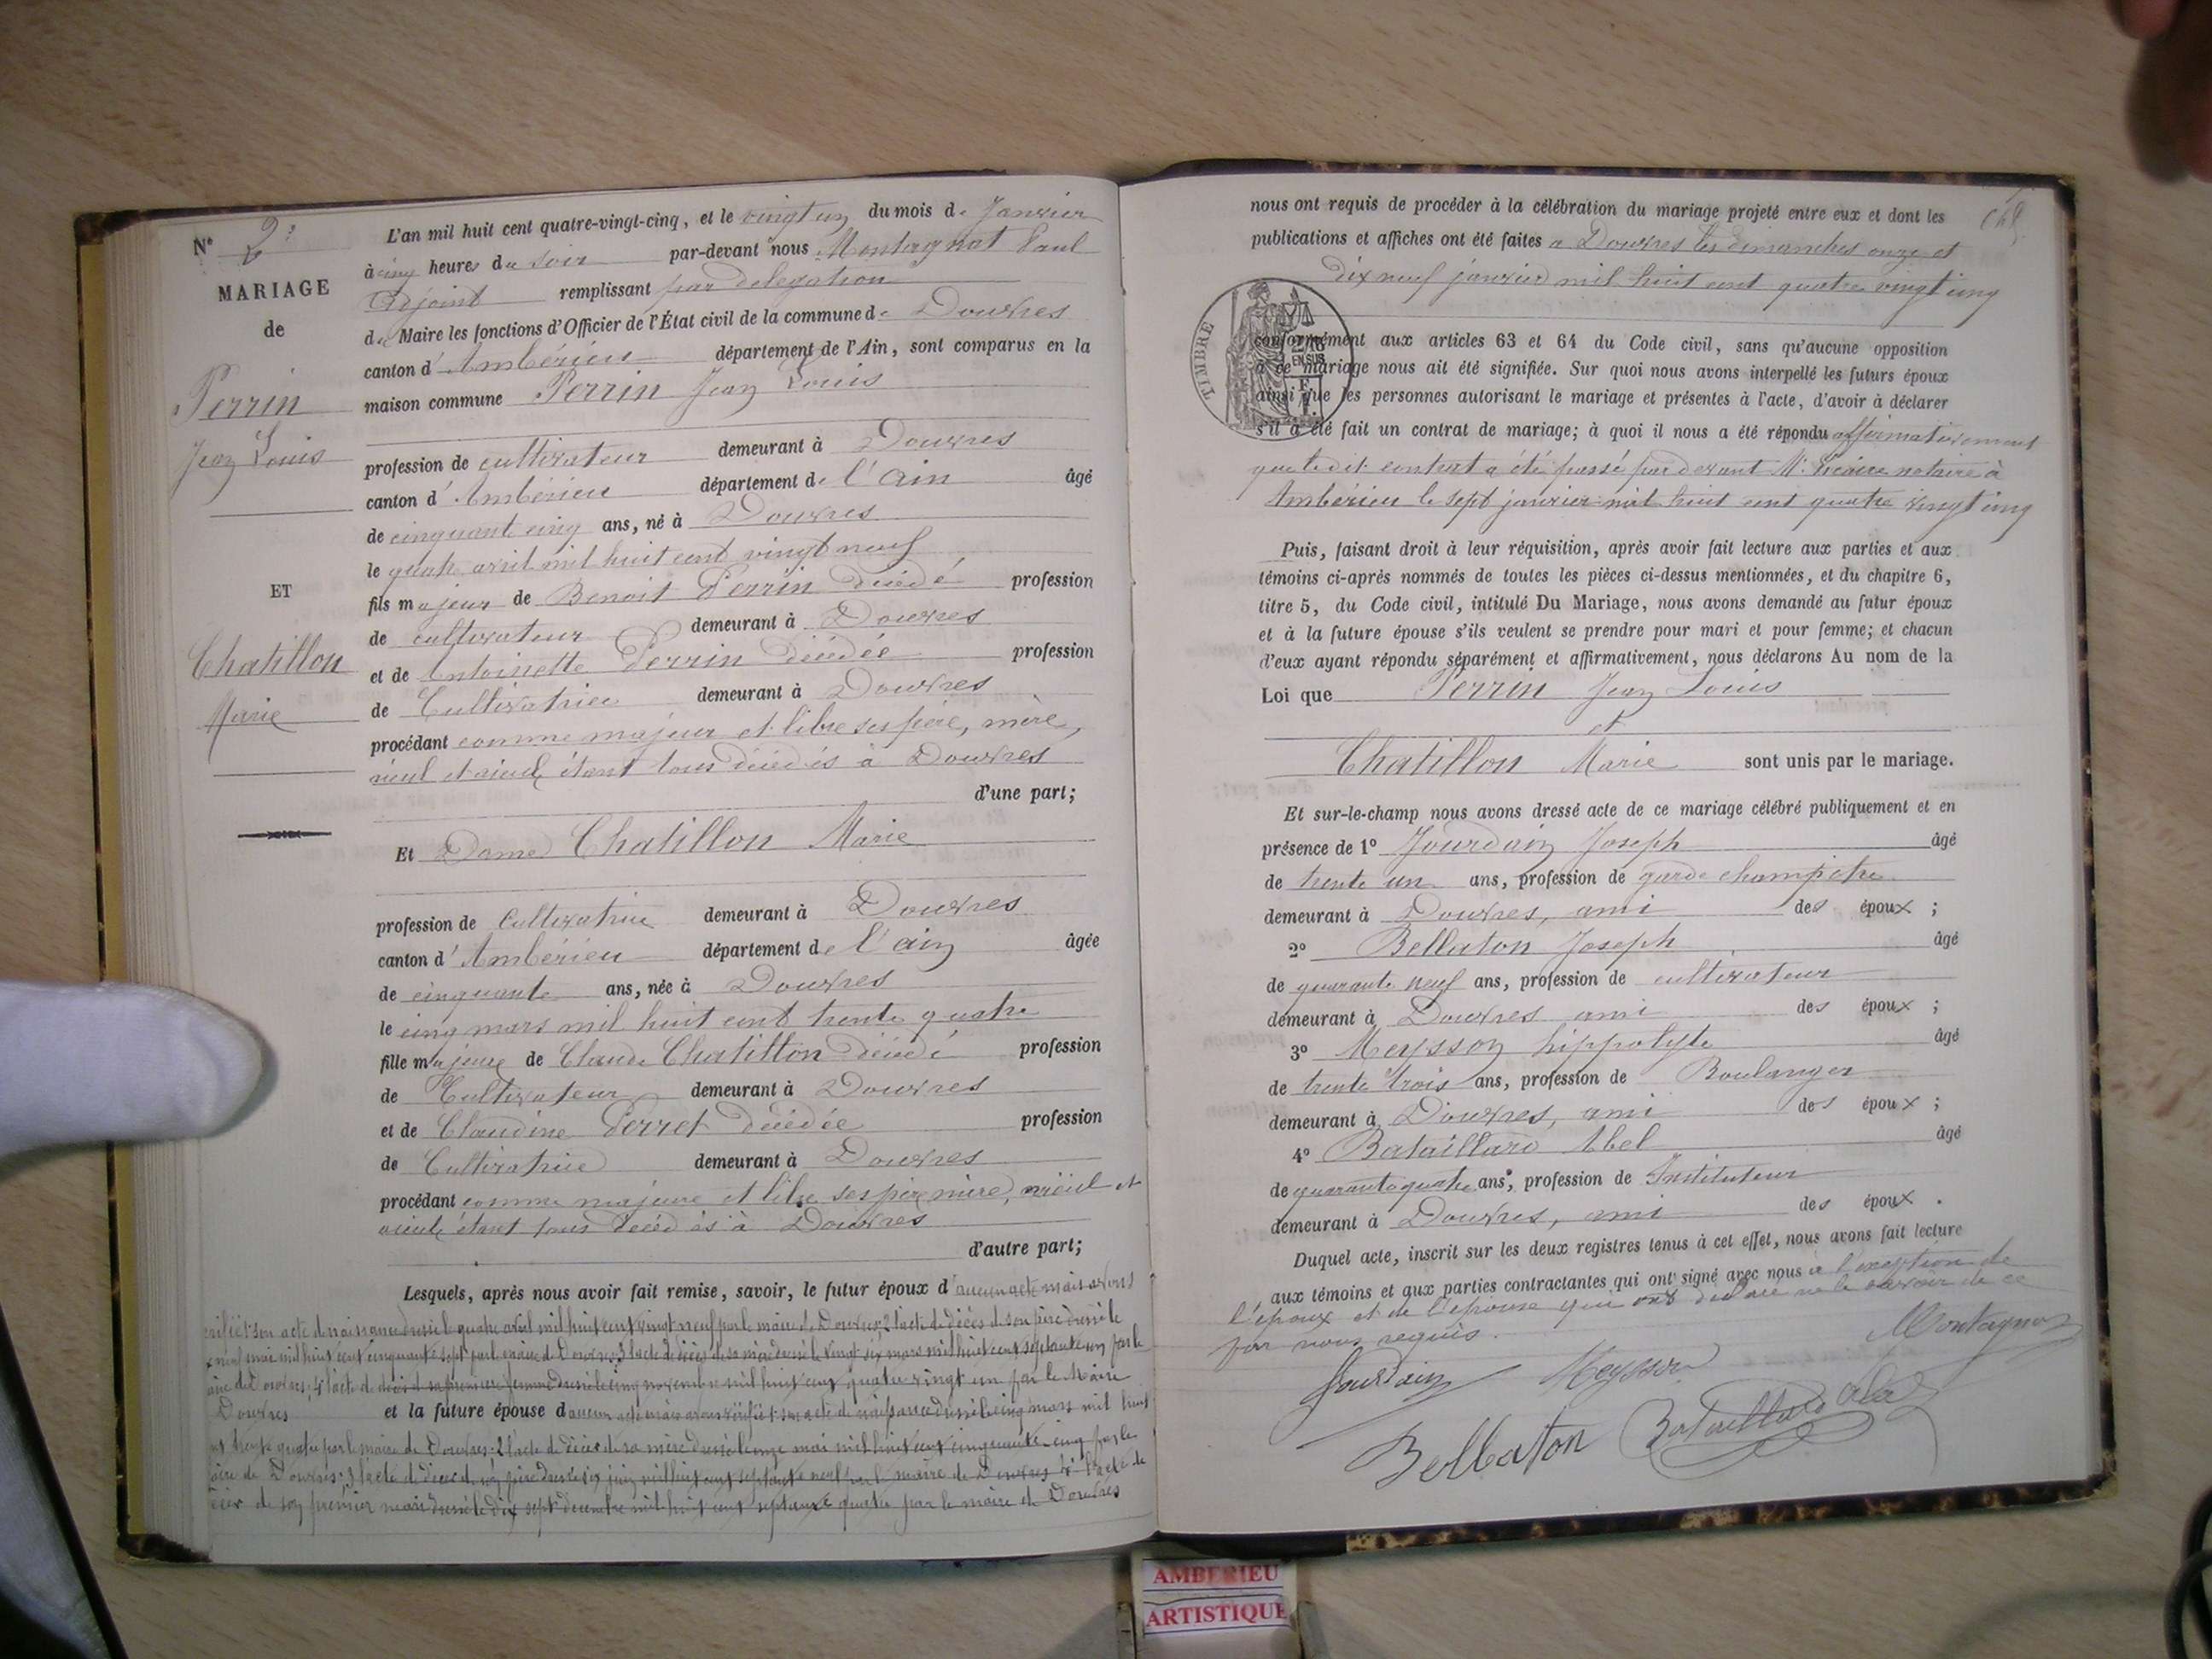 N° 2:
MARIAGE
de
Perrin
Jean Louis
ET
Chatillon
Marie
L'an mil huit cent quatre-vingt-cinq, et le vingt un du mois de Janvier
à cinq heures du soir par-devant nous Montagnat Paul
Adjoint remplissant par delegation
du Maire les fonctions d'Officier de l'État civil de la commune de Douvres
canton d'Ambérieu département de l'Ain, sont comparus en la
maison commune Perrin Jean Louis
profession de cultivateur demeurant à Douvres
canton d'Ambérieu département de l'Ain âgé
de cinquant cinq ans, né à Douvres
le quatre avril mil huit cent vingt neuf
fils majeur de Benoit Perrin décédé profession
de cultivateur demeurant à Douvres
et de Antoinette Perrin décédée profession
de Cultivatrice demeurant à Douvres
procédant comme majeur et libre ses père, mère,
aïeul et aïeule étant tous décédés à Douvres
d'une part;
Et Dame Chatillon Marie
profession de Cultivatrice demeurant à Douvres
canton d'Ambérieu département de l'Ain âgée
de cinquante ans, née à Douvres
le cinq mars mil huit cent trente quatre
fille majeure de Claude Chatillon décédé profession
de Cultivateur demeurant à Douvres
et de Claudine Perret décédée profession
de Cultivatrice demeurant à Douvres
procédant comme majeure et libre ses père mère, aïeul et
aïeule étant tous décédés à Douvres
d'autre part;
Lesquels, après nous avoir fait remise, savoir, le futur époux d'aucun acte mais avons
son acte de naissance dressé le quatre avril mil huit cent vingt neuf par le maire de Douvres; 2 l'acte de décès de son père dressé le
neuf mai mil huit cent cinquante sept par le maire de Douvres; 3 l'acte de décès de sa mère dressé le vingt six mars mil huit cent septante un par le
de Douvres; 4 l'acte de décès de sa première femme dressé le cinq novembre mil huit cent quatre vingt un par le Maire
Douvres et la future épouse d'aucun acte mais avons vérifié 1 son acte de naissance dressé le cinq mars mil huit
trente quatre par le maire de Douvres; 2 l'acte de décès de sa mère dressé le onze mai mil huit cent cinquante cinq par le
de Douvres; 3 l'acte de décès de son père dressé le six juin mil huit cent septante neuf par le maire de Douvres 4° l'acte de
de son premier mari dressé le dix sept decembre mil huit cent septante quatre par le maire de Douvres
nous ont requis de procéder à la célébration du mariage projeté entre eux et dont les
publications et affiches ont été faites à Douvres les dimanches onze et
dix neuf janvier mil huit cent quatre vingt cinq
TIMBRE
2/10 EN SUS
conformément aux articles 63 et 64 du Code civil, sans qu'aucune opposition
à ce mariage nous ait été signifiée. Sur quoi nous avons interpellé les futurs époux
ainsi que les personnes autorisant le mariage et présentes à l'acte, d'avoir à déclarer
s'il a été fait un contrat de mariage; à quoi il nous a été répondu affirmativement
que ledit contrat a été passé par devant Me notaire à
Ambérieu le sept janvier mil huit cent quatre vingt cinq
Puis, faisant droit à leur réquisition, après avoir fait lecture aux parties et aux
témoins ci-après nommés de toutes les pièces ci-dessus mentionnées, et du chapitre 6,
titre 5, du Code civil, intitulé Du Mariage, nous avons demandé au futur époux
et à la future épouse s'ils veulent se prendre pour mari et pour femme; et chacun
d'eux ayant répondu séparément et affirmativement, nous déclarons Au nom de la
Loi que Perrin Jean Louis
et
Chatillon Marie sont unis par le mariage.
Et sur-le-champ nous avons dressé acte de ce mariage célébré publiquement et en
présence de 1° Jourdain Joseph âgé
de trente un ans, profession de garde champêtre
demeurant à Douvres, ami des époux ;
2° Bellaton Joseph âgé
de quarante neuf ans, profession de cultivateur
demeurant à Douvres ami des époux ;
3° Meysson hippolyte âgé
de trente trois ans, profession de Boulanger
demeurant à Douvres, ami des époux ;
4° Bataillard Abel âgé
de quarante quatre ans, profession de Instituteur
demeurant à Douvres, ami des époux .
Duquel acte, inscrit sur les deux registres tenus à cet effet, nous avons fait lecture
aux témoins et aux parties contractantes qui ont signé avec nous à l'exception de
l'époux et de l'épouse qui ont déclaré ne le savoir de ce
par nous requis.
Montagnat
Jourdain Meysson
Bellaton Bataillard Abel
AMBERIEU
ARTISTIQUE